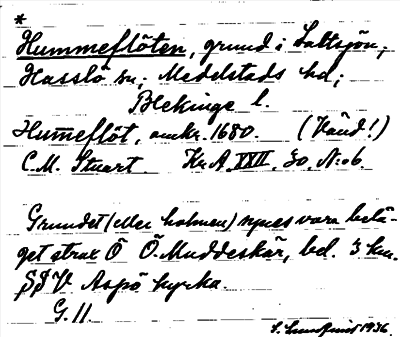 *
Hummeflöten, grund i Saltsjön;
Hasslö sn; Medelstads hd;
Blekinge l.
Humeflöt, omkr. 1680. (Vänd!)
C.M. Stuart. Kr.A. XXII. 30. N:o 6.
Grundet (eller holmen) synes vara belä-
get strax Ö Ö. Muddeskär, bel. 3 km.
SSV Aspö kyrka.
G. 11.
S. Lundquist 1936.